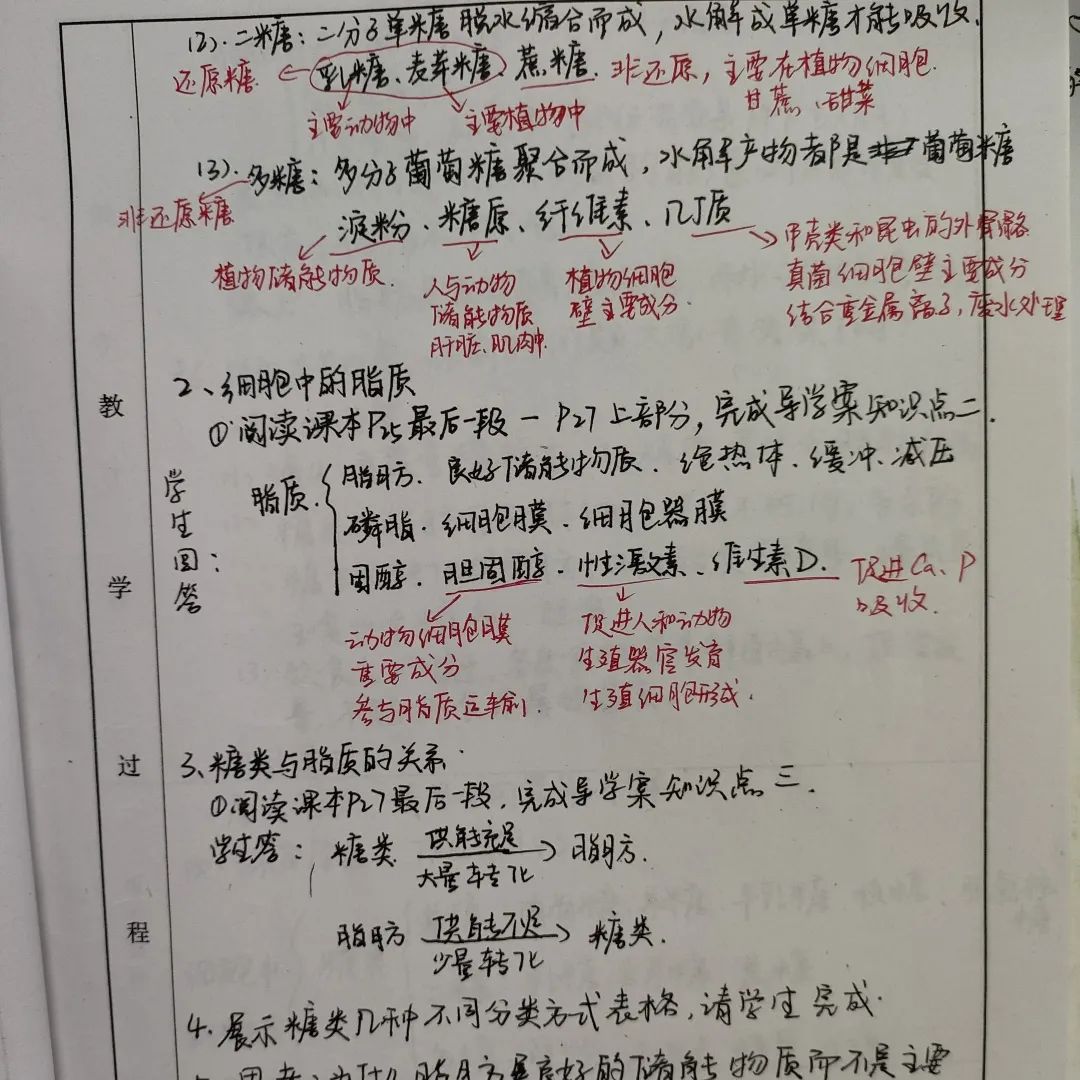 (2).二糖：二分子单糖脱水缩合而成，水解成单糖才能吸收.
还原糖 ← 乳糖、麦芽糖、蔗糖. 非还原，主要在植物细胞
甘蔗、甜菜
主要动物中 主要植物中
(3).多糖：多分子葡萄糖聚合而成，水解产物都是葡萄糖
非还原糖
淀粉、糖原、纤维素、几丁质
植物储能物质.
人与动物
储能物质
肝脏、肌肉中.
植物细胞
壁主要成分.
甲壳类和昆虫的外骨骼
真菌细胞壁主要成分
结合重金属离子，废水处理
2、细胞中的脂质
①阅读课本P25最后一段－P27上部分，完成导学案知识点二.
学生回答：
脂质
脂肪. 良好储能物质、绝热体、缓冲、减压
磷脂. 细胞膜、细胞器膜
固醇. 胆固醇、性激素、维生素D. 促进Ca、P
吸收.
动物细胞膜
重要成分
参与脂质运输.
促进人和动物
生殖器官发育
生殖细胞形成.
3、糖类与脂质的关系.
①阅读课本P27最后一段，完成导学案知识点三.
学生答： 糖类 供能充足 → 脂肪.
大量转化
脂肪 供能不足 → 糖类.
少量转化
4.展示糖类几种不同分类方式表格，请学生完成.
思考：为什么脂肪是良好的储能物质而不是主要
教
学
过
程